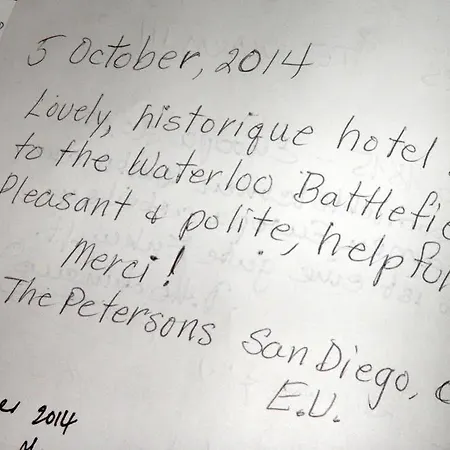 5 October, 2014
Lovely, historique hotel
to the Waterloo Battlefie
Pleasant & polite, helpful
Merci!
The Petersons San Diego, C
E.U.
er 2014